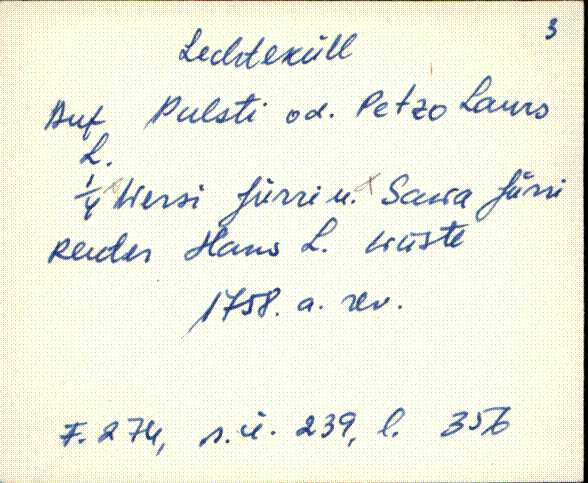 3
Lechteküll
Auf Pulsti od. Petzo Laurs
L.
1/4 x Wersi Jürri u. x Sawa Jürri
Render Hans L. wüste
1758. a. rev.
F. 274, s.ü. 239, l. 356